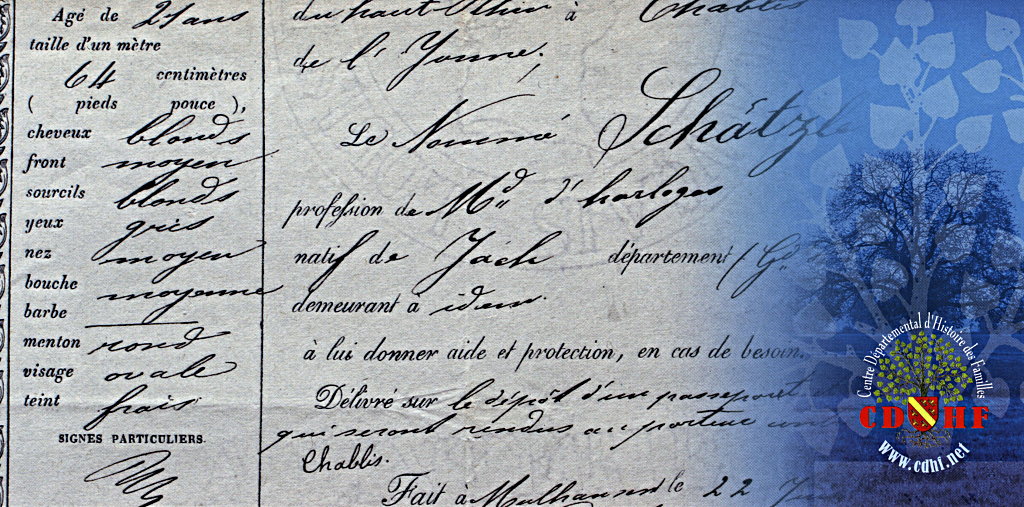 Agé de 21 ans
taille d'un mètre
64 centimètres
( pieds pouce ),
cheveux blonds
front moyen
sourcils blonds
yeux gris
nez moyen
bouche moyenne
barbe
menton rond
visage ovale
teint frais
SIGNES PARTICULIERS.
du haut Rhin à Chablis
de l'Yonne.
Le Nommé Schätzle
profession de Md d'horloges
natif de Jach département
demeurant à idem.
à lui donner aide et protection, en cas de besoin.
Délivré sur le dépôt d'un passeport
qui seront rendus au porteur
Chablis.
Fait à Mulhausen le 22
Centre Départemental d'Histoire des Familles
CDHF
www.cdhf.net